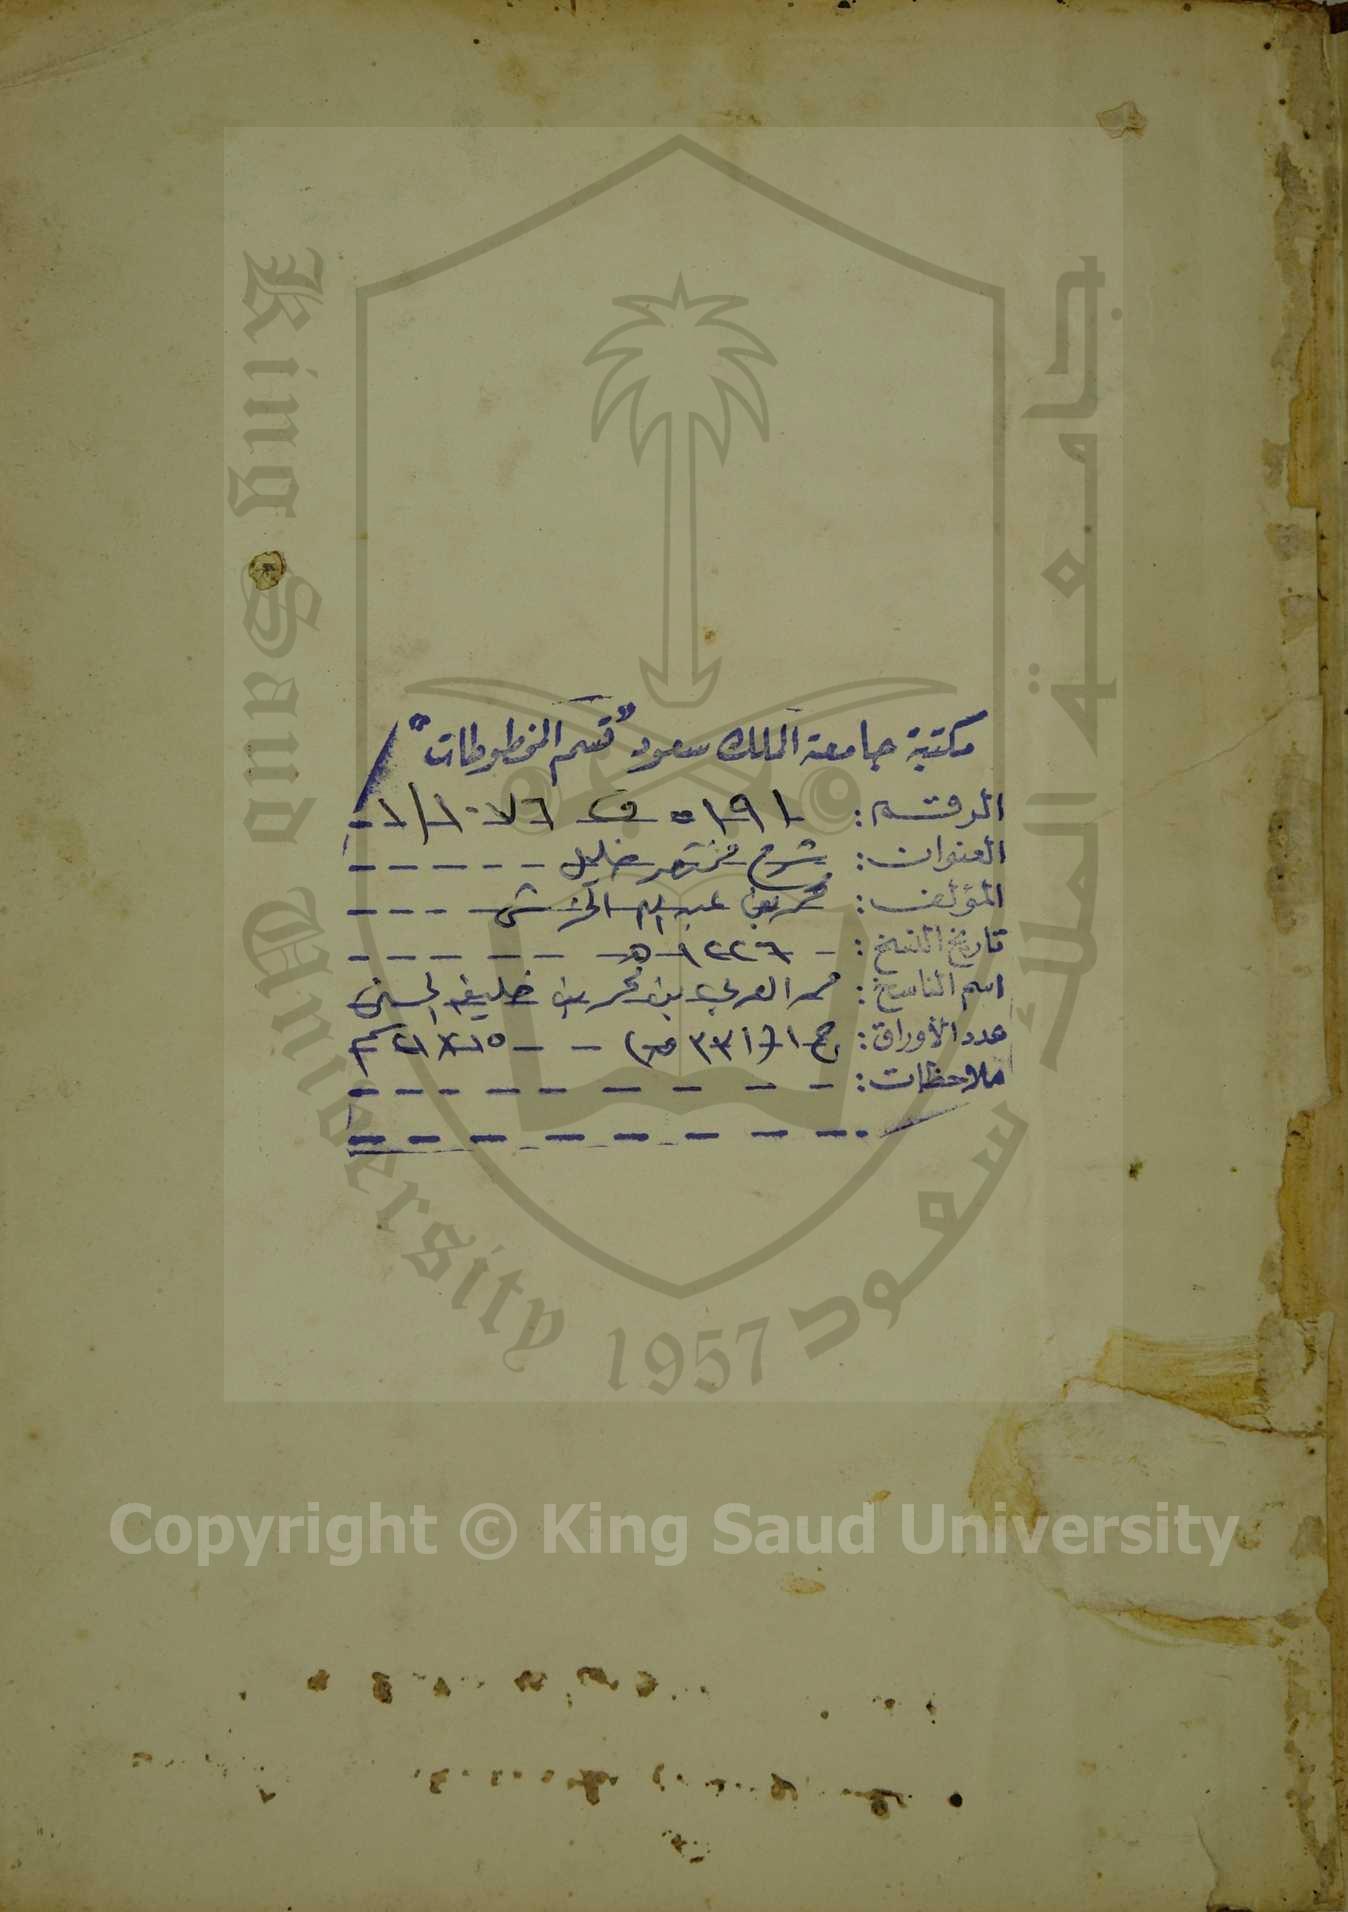 مكتبة جامعة الملك سعود "قسم المخطوطات"
الرقم: ٥١٩١ ف ١/١٠٧٦
العنوان: شرح مختصر خليل
المؤلف: محمد بن عبد الله الخرشي
تاريخ النسخ: ١٢٢٦ هـ
اسم الناسخ: محمد العربي بن محمد بن خليفه الحسني
عدد الأوراق: ج١ (٣٣١ ق)
ملاحظات:
King Saud University
جامعة الملك سعود
1957
Copyright © King Saud University